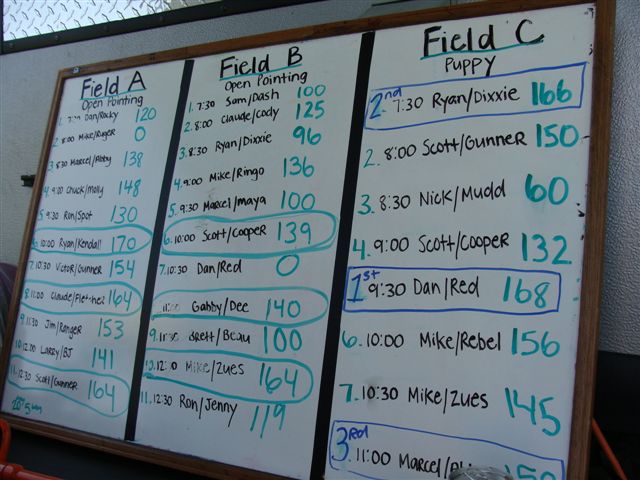 Field A
Open Pointing
1. 7:30 Dan/Rocky 120
2. 8:00 Mike/Ruger 0
3. 8:30 Marcel/Abby 138
4. 9:00 Chuck/Molly 148
5. 9:30 Ron/Spot 130
6. 10:00 Ryan/Kendall 170
7. 10:30 Victor/Gunner 154
8. 11:00 Claude/Fletcher 164
9. 11:30 Jim/Ranger 153
10. 12:00 Larry/BJ 141
11. 12:30 Scott/Gunner 164
Field B
Open Pointing
1. 7:30 Sam/Dash 100
2. 8:00 Claude/Cody 125
3. 8:30 Ryan/Dixxie 96
4. 9:00 Mike/Ringo 136
5. 9:30 Marcel/maya 100
6. 10:00 Scott/Cooper 139
7. 10:30 Dan/Red 0
11:00 Gabby/Dee 140
9. 11:30 Brett/Beau 100
10. 12:00 Mike/Zues 164
11. 12:30 Ron/Jenny 119
Field C
Puppy
2nd 7:30 Ryan/Dixxie 166
2. 8:00 Scott/Gunner 150
3. 8:30 Nick/Mudd 60
4. 9:00 Scott/Cooper 132
1st 9:30 Dan/Red 168
6. 10:00 Mike/Rebel 156
7. 10:30 Mike/Zues 145
3rd 11:00 Marcel/